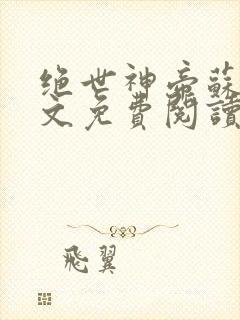 绝世神帝蘇
文免費閱讀
飛翼